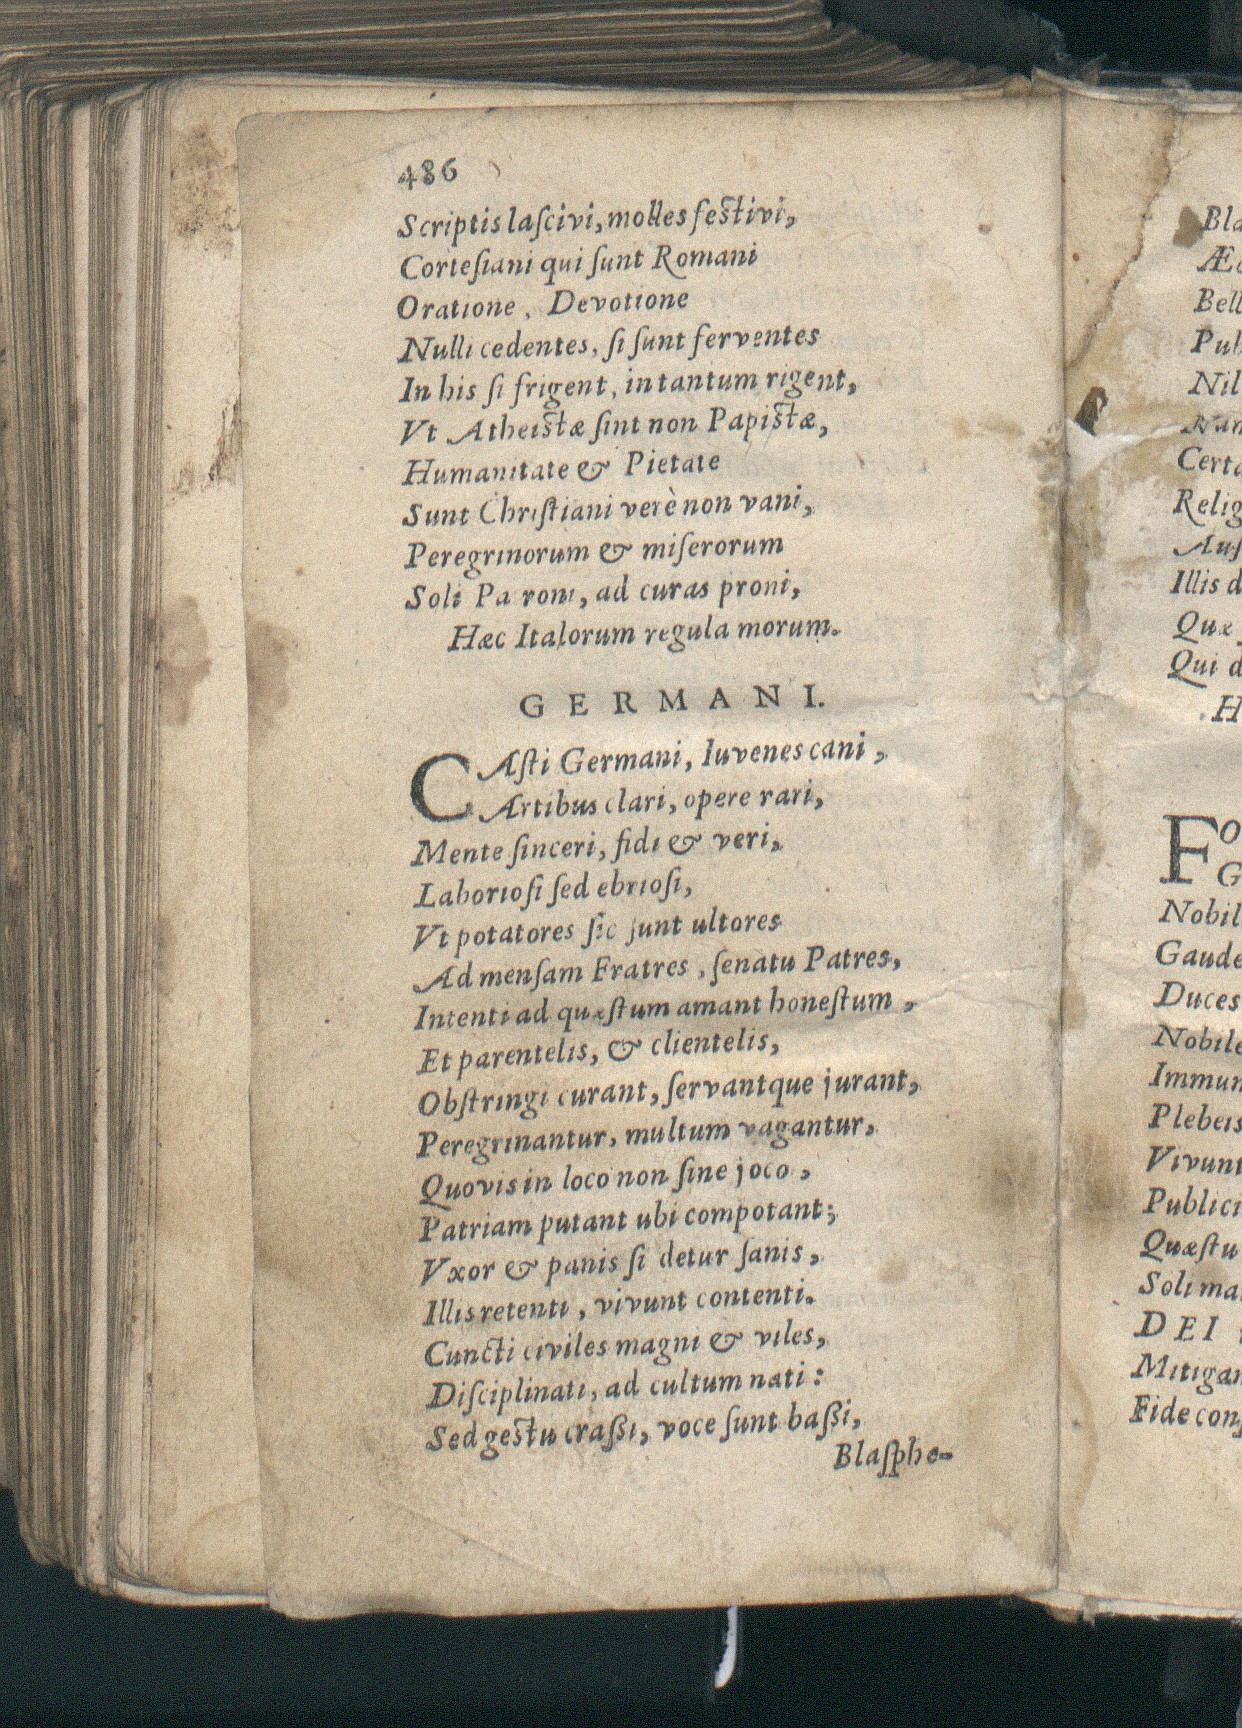 486
Scriptis lascivi, molles festivi,
Cortesiani qui sunt Romani
Oratione, Devotione
Nulli cedentes, si sunt ferventes
In his si frigent, in tantum rigent,
Vt Atheistæ sint non Papistæ,
Humanitate & Pietate
Sunt Christiani verè non vani,
Peregrinorum & miserorum
Soli Pa roni, ad curas proni,
Hæc Italorum regula morum.
GERMANI.
CAsti Germani, Iuvenes cani,
Artibus clari, opere rari,
Mente sinceri, fidi & veri,
Laboriosi sed ebriosi,
Vt potatores sic sunt ultores
Ad mensam Fratres, senatu Patres,
Intenti ad quæstum amant honestum,
Et parentelis, & clientelis,
Obstringi curant, servantque jurant,
Peregrinantur, multum vagantur,
Quovis in loco non sine joco,
Patriam putant ubi compotant;
Vxor & panis si detur sanis,
Illis retenti, vivunt contenti.
Cuncti civiles magni & viles,
Disciplinati, ad cultum nati:
Sed gestu crassi, voce sunt bassi,
Blasphe-
Bla
Æ
Bell
Pub
Nil
Nam
Certa
Relig
Aus
Illis d
Quæ
Qui d
H
FO
G
Nobil
Gaude
Duces
Nobile
Immun
Plebeis
Vivunt
Publici
Quæstu
Soli ma
DEI
Mitigan
Fide con